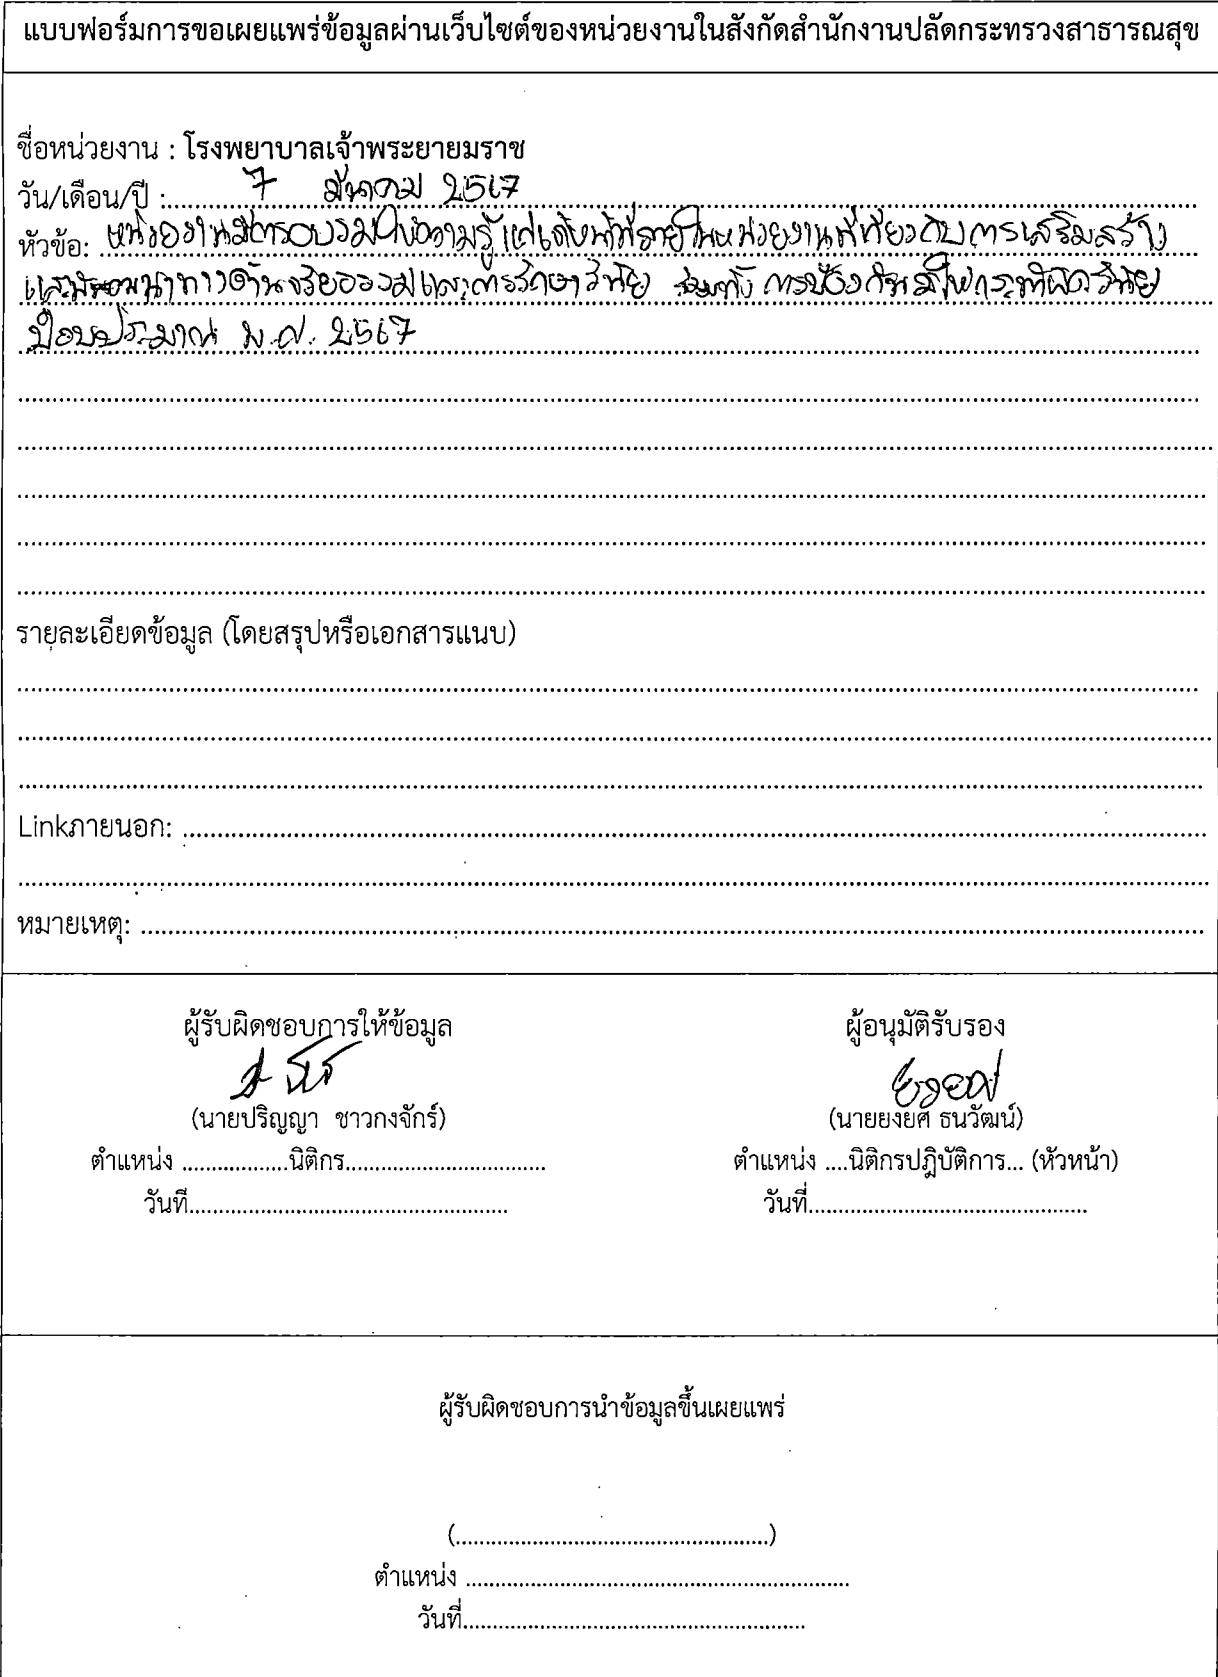 แบบฟอร์มการขอเผยแพร่ข้อมูลผ่านเว็บไซต์ของหน่วยงานในสังกัดสำนักงานปลัดกระทรวงสาธารณสุข
ชื่อหน่วยงาน : โรงพยาบาลเจ้าพระยายมราช
วัน/เดือน/ปี :..........7 มีนาคม 2567..........
หัวข้อ: หน่วยงานมีการอบรมให้ความรู้แก่เจ้าหน้าที่ภายในหน่วยงานที่เกี่ยวกับการเสริมสร้าง
และพัฒนาทางด้านจริยธรรมและการรักษาวินัย รวมทั้ง การป้องกันมิให้กระทำผิดวินัย
ปีงบประมาณ พ.ศ. 2567
รายละเอียดข้อมูล (โดยสรุปหรือเอกสารแนบ)
Linkภายนอก: ..........
หมายเหตุ: ..........
ผู้รับผิดชอบการให้ข้อมูล ผู้อนุมัติรับรอง
ยงยศ
(นายปริญญา ชาวกงจักร์) (นายยงยศ ธนวัฒน์)
ตำแหน่ง ..........นิติกร.......... ตำแหน่ง ....นิติกรปฏิบัติการ... (หัวหน้า)
วันที่.......... วันที่..........
ผู้รับผิดชอบการนำข้อมูลขึ้นเผยแพร่
(..........)
ตำแหน่ง ..........
วันที่..........